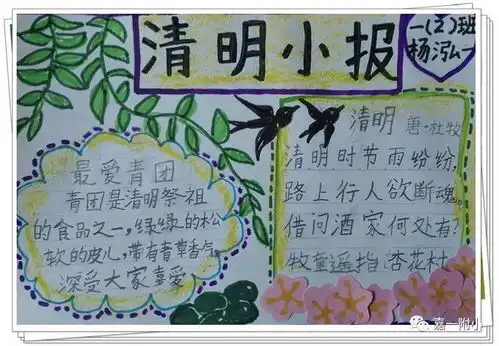 清明小报
一(2)班
杨泓一
最爱青团
青团是清明祭祖
的食品之一,绿绿的松
软的皮儿,带有青草香气。
深受大家喜爱
清明 唐·杜牧
清明时节雨纷纷,
路上行人欲断魂。
借问酒家何处有?
牧童遥指杏花村
嘉一附小